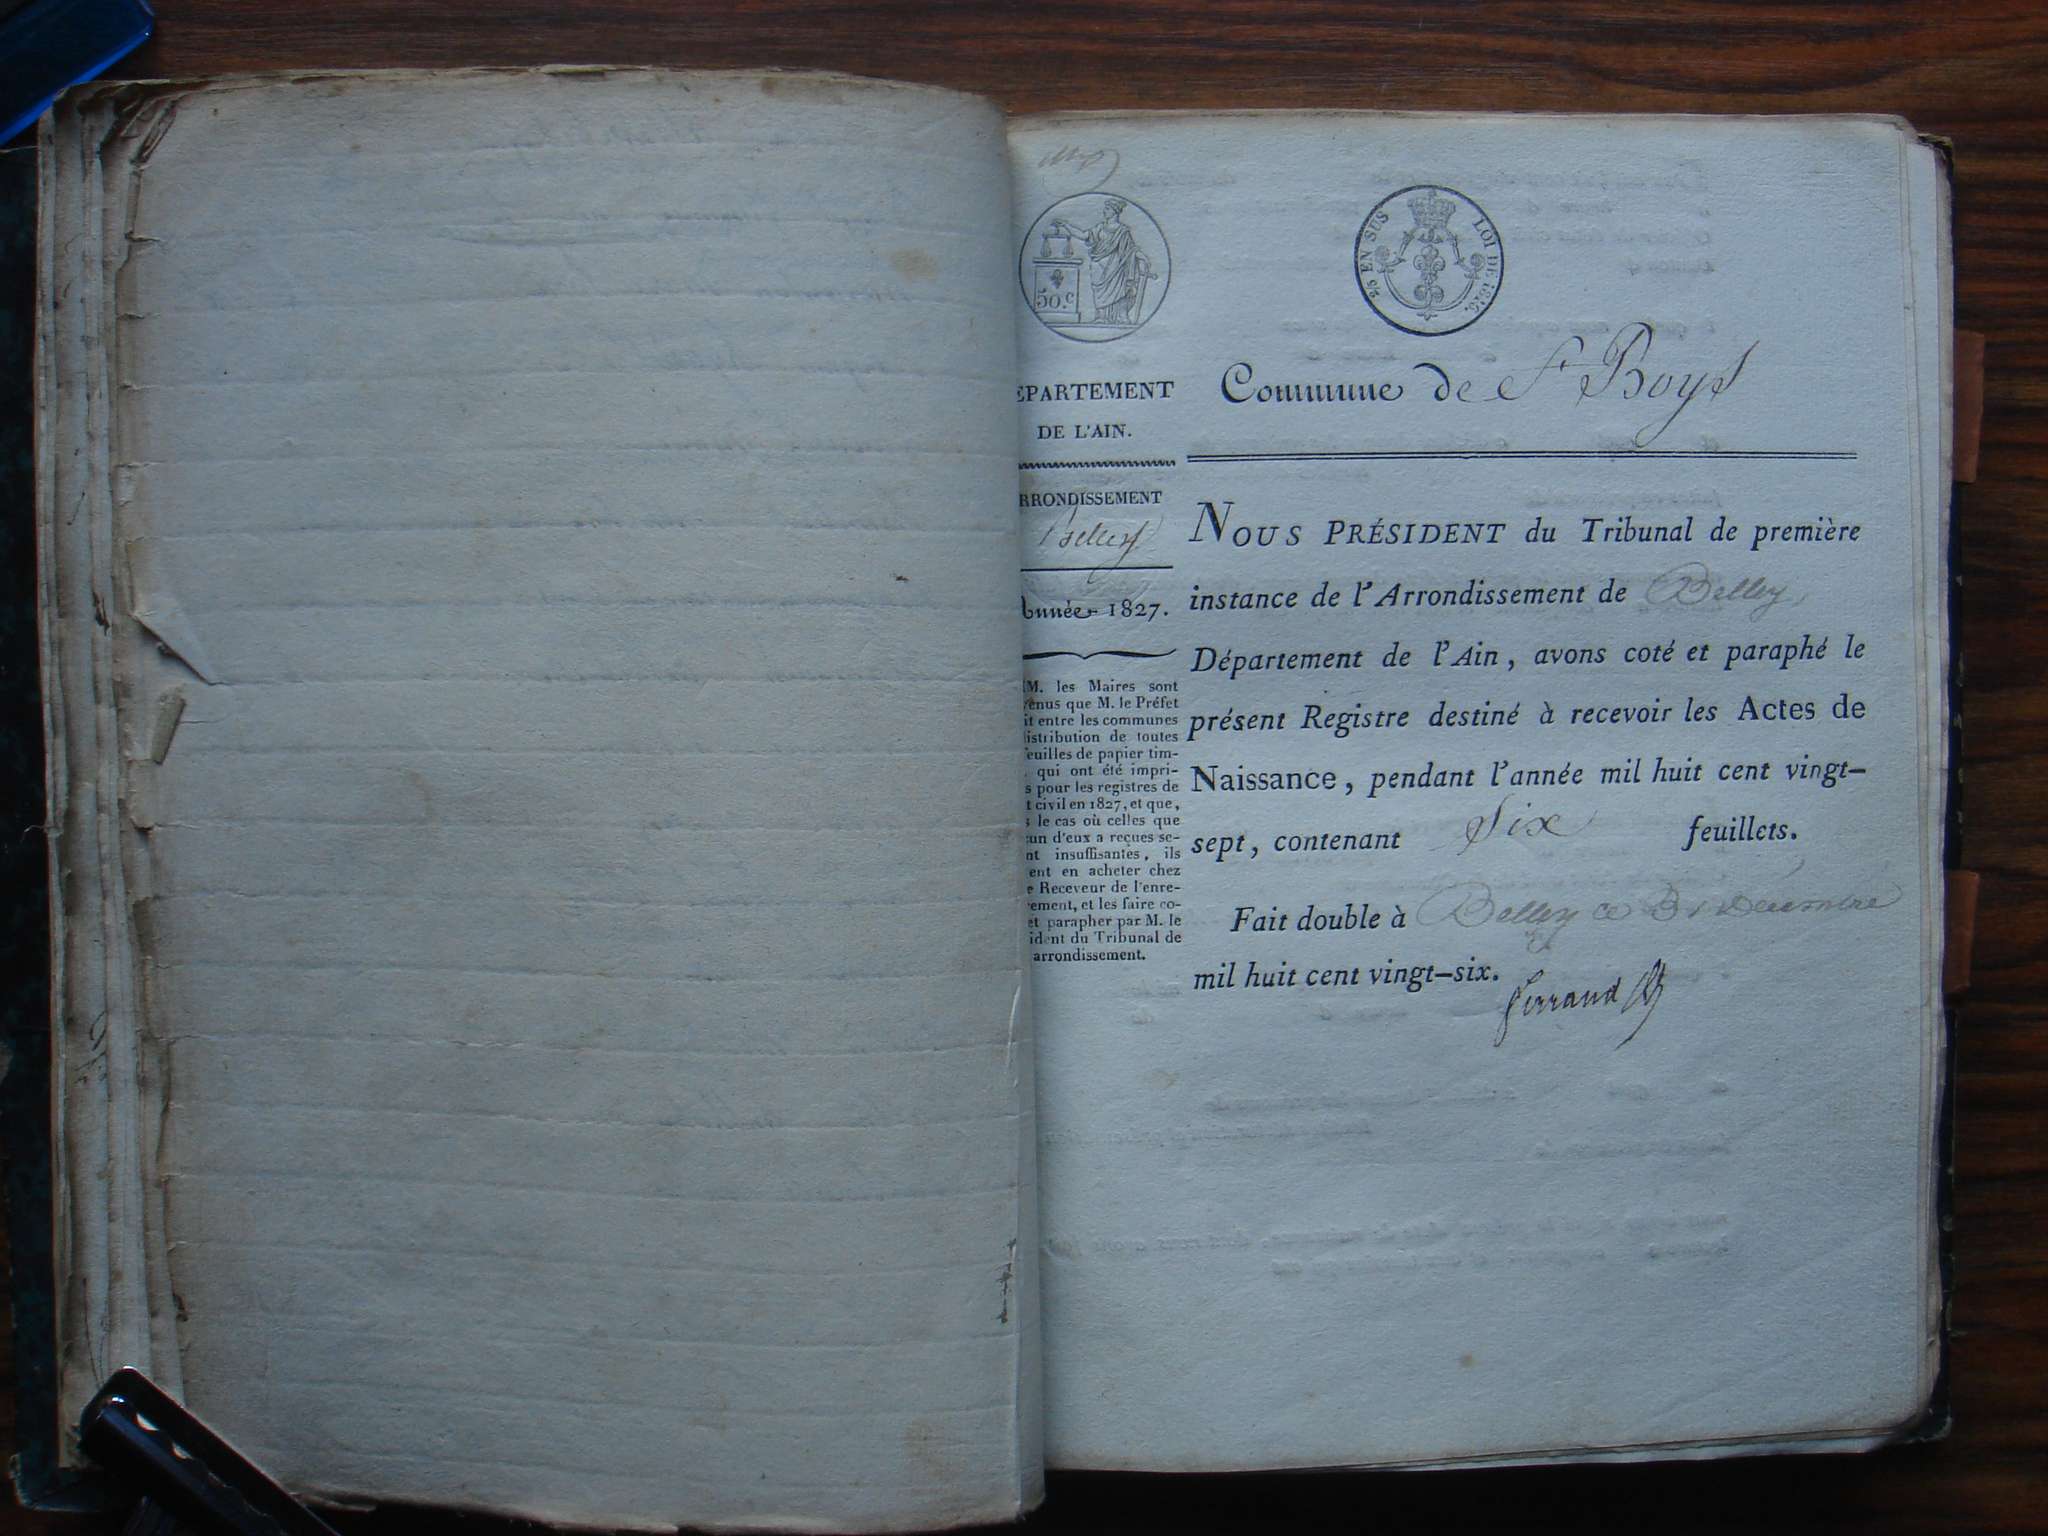 50.c
25 EN SUS LOI DE 1816.
EPARTEMENT
DE L'AIN.
RRONDISSEMENT
Belley
Année 1827.
M. les Maires sont
venus que M. le Préfet
it entre les communes
distribution de toutes
feuilles de papier tim-
qui ont été impri-
s pour les registres de
t civil en 1827, et que,
s le cas où celles que
cun d'eux a reçues se-
nt insuffisantes, ils
ent en acheter chez
e Receveur de l'enre-
rement, et les faire co-
et parapher par M. le
ident du Tribunal de
arrondissement.
Commune de St Boys
NOUS PRÉSIDENT du Tribunal de première
instance de l'Arrondissement de Belley
Département de l'Ain, avons coté et paraphé le
présent Registre destiné à recevoir les Actes de
Naissance, pendant l'année mil huit cent vingt-
sept, contenant Six feuillets.
Fait double à Belley ce 31 Décembre
mil huit cent vingt-six.
Ferrand